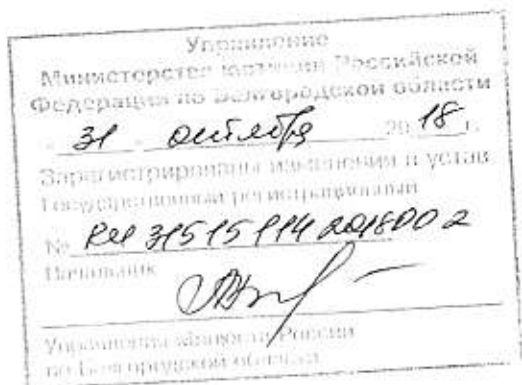 Управление
Министерства юстиции Российской
Федерации по Белгородской области
« 31 » октября 20 18 г.
Зарегистрированы изменения в устав
Государственный регистрационный
№ RU 315151142018002
Начальник
Управления Минюста России
по Белгородской области